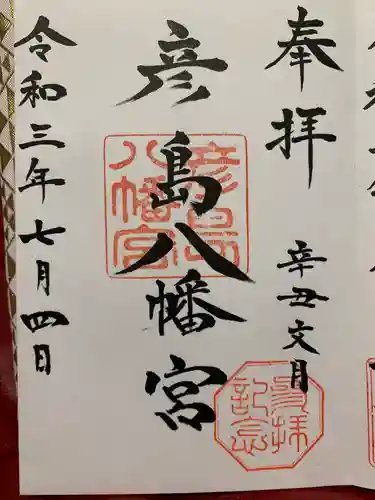 奉拝
辛丑文月
彦島八幡宮
令和三年七月四日
彦島八幡宮
参拝記念